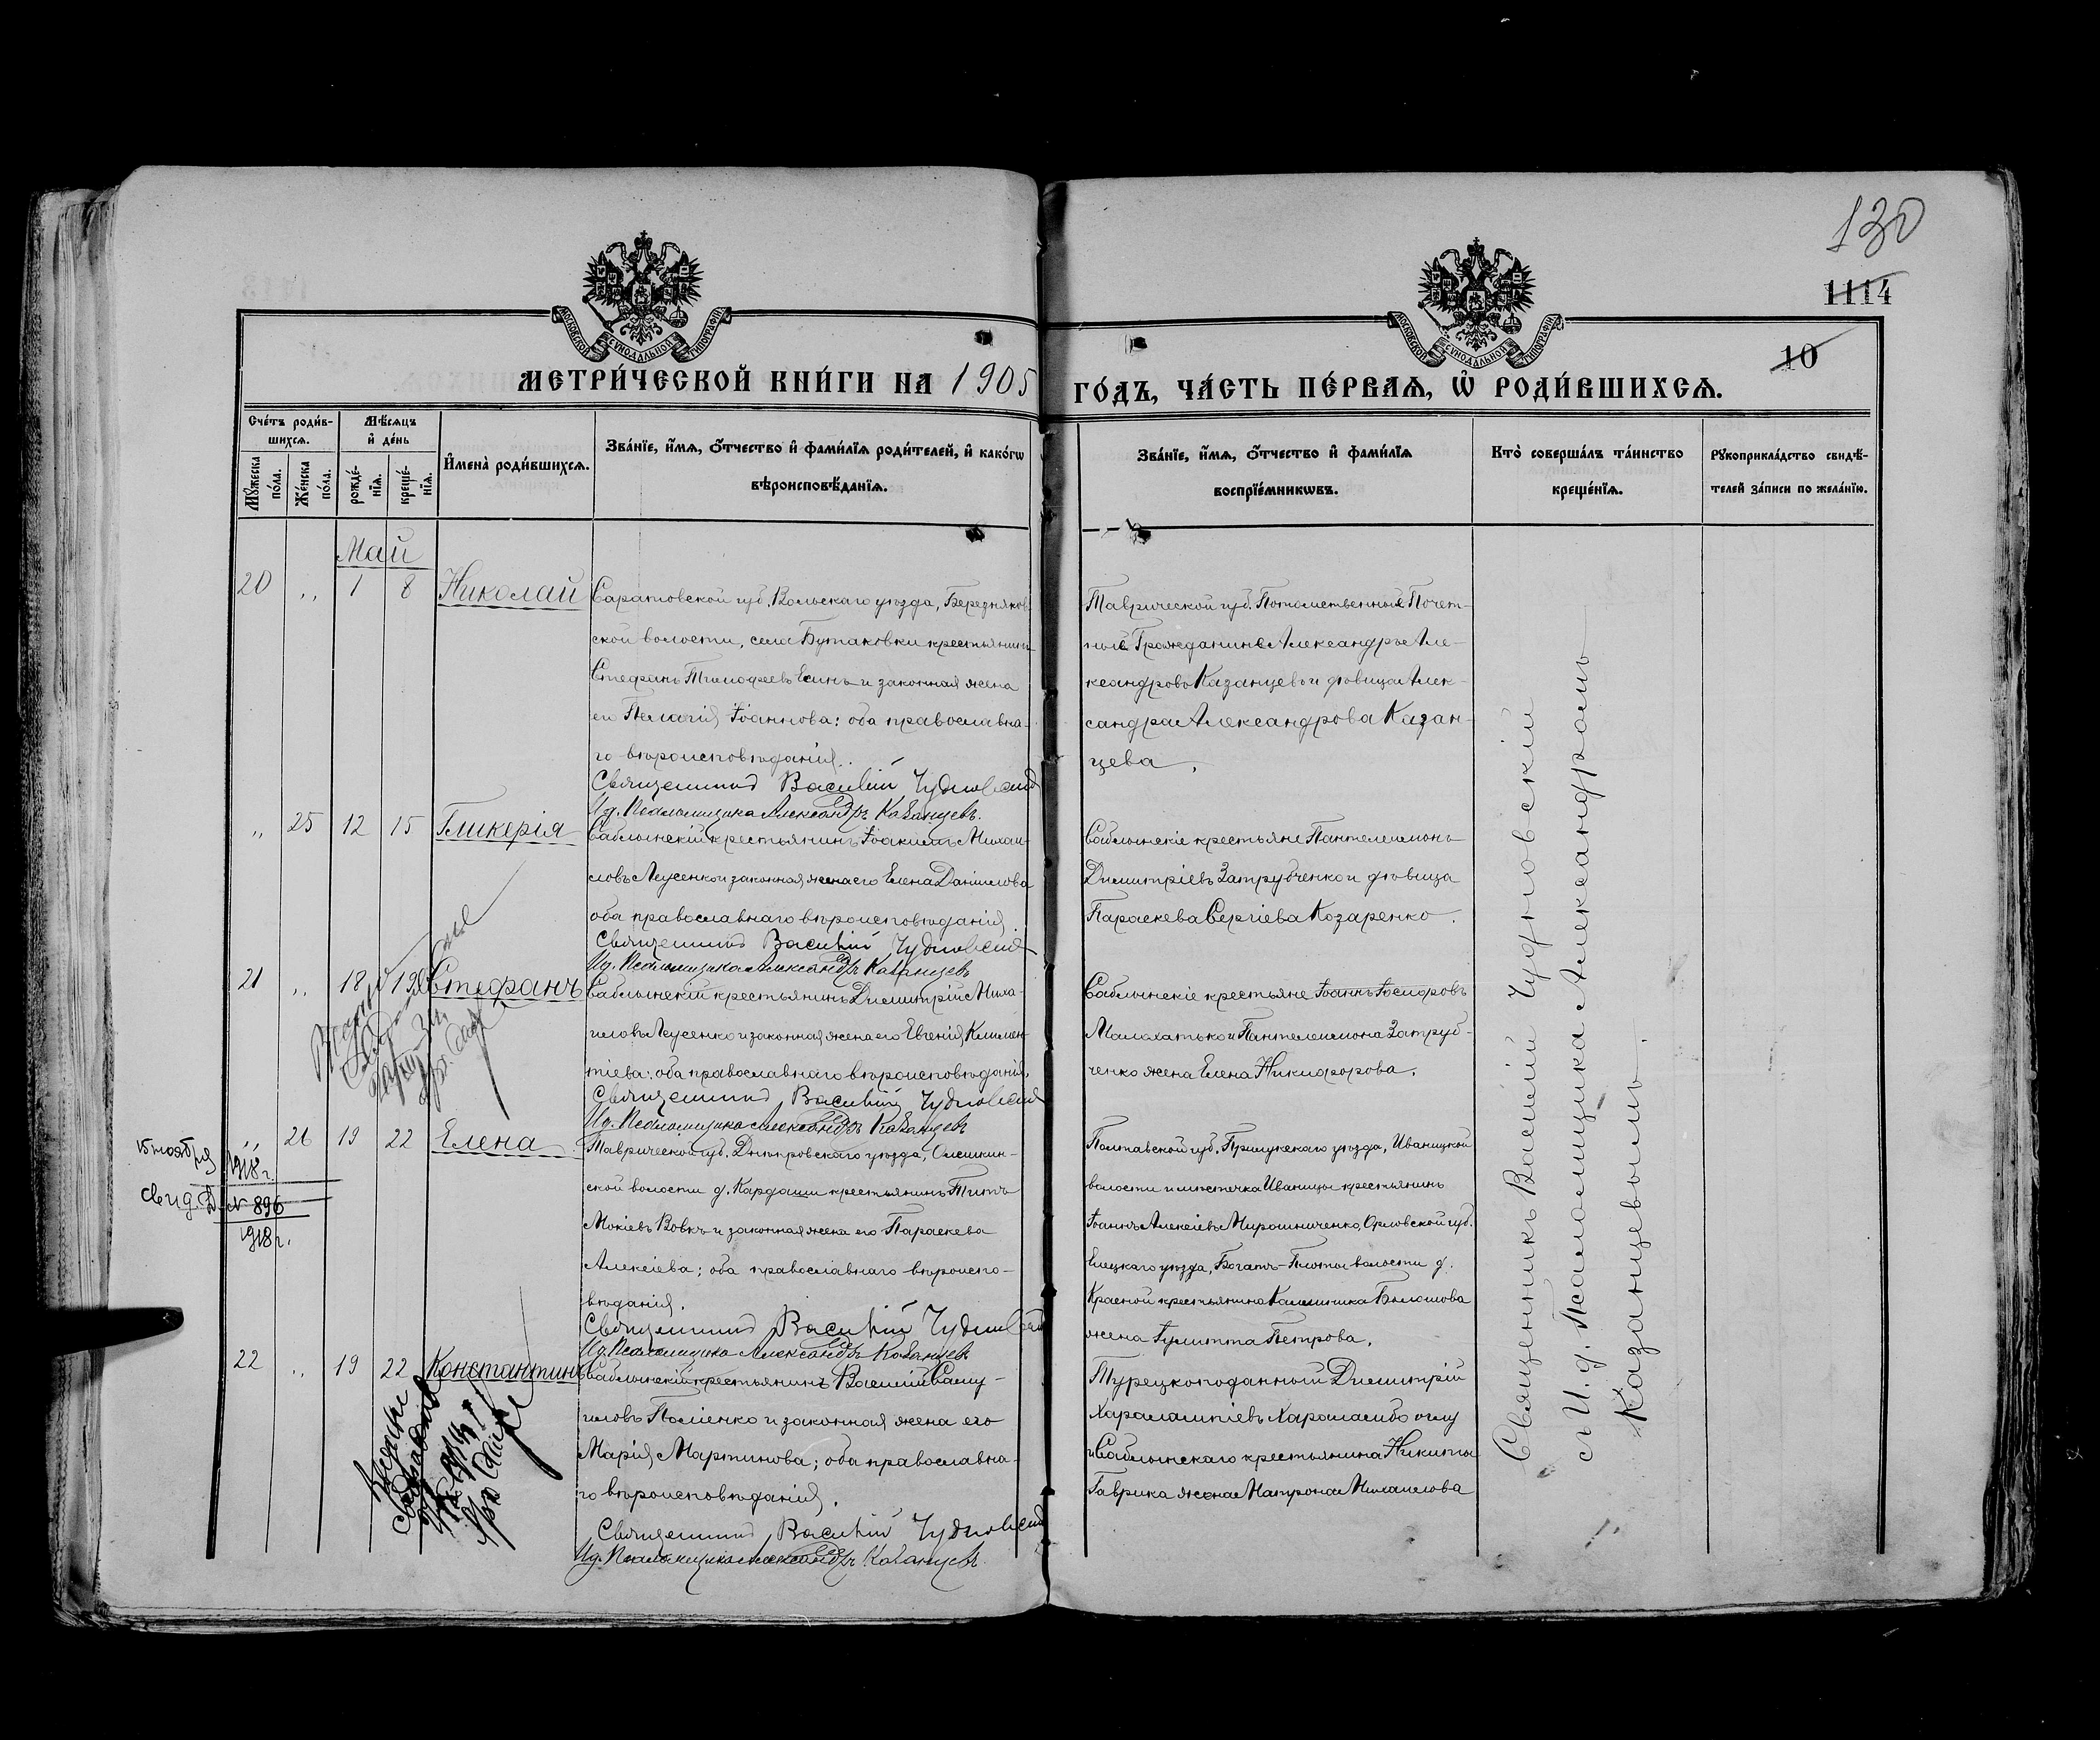 130
1114
10
МОСКОВСКОЙ СѴНОДАЛЬНОЙ ТИПОГРАФІИ
МОСКОВСКОЙ СѴНОДАЛЬНОЙ ТИПОГРАФІИ
МЕТРИ́ЧЕСКОЙ КНИ́ГИ НА 1905 ГО́ДЪ, ЧА́СТЬ ПЕ́РВАѦ, Ѡ҆ РОДИ́ВШИХСѦ.
Сче́тъ роди́в-
шихсѧ.
Мѣ́сѧцъ
и҆ де́нь
Мꙋ́жеска по́ла.
Же́нска по́ла.
рожде́-
нїѧ.
креще́-
нїѧ.
И҆мена̀ роди́вшихсѧ.
Зва́нїе, и҆́мѧ, ѻ҆́тчество и҆ фами́лїѧ роди́телей, и҆ како́гѡ
вѣроисповѣ́данїѧ.
Зва́нїе, и҆́мѧ, ѻ҆́тчество и҆ фами́лїѧ
воспрїе́мникѡвъ.
Кто̀ соверша́лъ та́инство
креще́нїѧ.
Рꙋкоприкла́дство свидѣ́-
телей за́писи по жела́нїю.
Май
20 „ 1 8 Николай
Саратовской губ. Вольскаго уѣзда, Березняков-
ской волости, села Бутаковки крестьянинъ
Стефанъ Тимофеевъ Есинъ и законная жена
его Пелагія Іоаннова: оба православна-
го вѣроисповѣданія.
Священникъ Василій Чудновскій
И.д. Псаломщика Александръ Казанцевъ.
Таврической губ. Потомственный Почет-
ный Гражданинъ Александръ Але-
ксандровъ Казанцевъ и дѣвица Алек-
сандра Александрова Казан-
цева.
„ 25 12 15 Гликерія
Саблынскій крестьянинъ Іоакимъ Михаи-
ловъ Лусенко и законная жена его Елена Даніилова
оба православнаго вѣроисповѣданія.
Священникъ Василій Чудновскій
И.д. Псаломщика Александръ Казанцевъ
Саблынскіе крестьяне Пантелеимонъ
Димитріевъ Затрубченко и дѣвица
Параскева Сергіева Козаренко.
21 „ 18 19 Стефанъ
Саблынскій крестьянинъ Димитрій Миха-
иловъ Лусенко и законная жена его Евгенія Климен-
тіева: оба православнаго вѣроисповѣданія.
Священникъ Василій Чудновскій
И.д. Псаломщика Александръ Казанцевъ
Саблынскіе крестьяне Іоаннъ Іосифовъ
Малахатько и Пантелеимона Затруб-
ченко жена Елена Никифорова.
15 ноября
1918 г.
свид. № 896
1918 г.
„ 26 19 22 Елена
Таврической губ. Днѣпровскаго уѣзда, Олешкин-
ской волости д. Кардаши крестьянинъ Титъ
Мокіевъ Вовкъ и законная жена его Параскева
Алексіева; оба православнаго вѣроиспо-
вѣданія.
Священникъ Василій Чудновскій
И.д. Псаломщика Александръ Казанцевъ
Полтавской губ. Прилукскаго уѣзда, Иваницкой
волости и мѣстечка Иваницы крестьянинъ
Іоаннъ Алексіевъ Мирошниченко, Орловской губ.
Елецкаго уѣзда, Богато-Плоты волости д.
Красной крестьянина Каллиника Бѣлошова
жена Іулитта Петрова.
22 „ 19 22 Константинъ
Саблынскій крестьянинъ Василій Саму-
иловъ Поліенко и законная жена его
Марія Мартинова; оба православна-
го вѣроисповѣданія.
Священникъ Василій Чудновскій
И.д. Псаломщика Александръ Казанцевъ.
Турецкоподанный Димитрій
Харалампіевъ Харламбо оглу
и Саблынскаго крестьянина Никиты
Гаврика жена Матрона Михаилова
Священникъ Василій Чудновскій
съ И.д. Псаломщика Александромъ
Казанцевымъ.